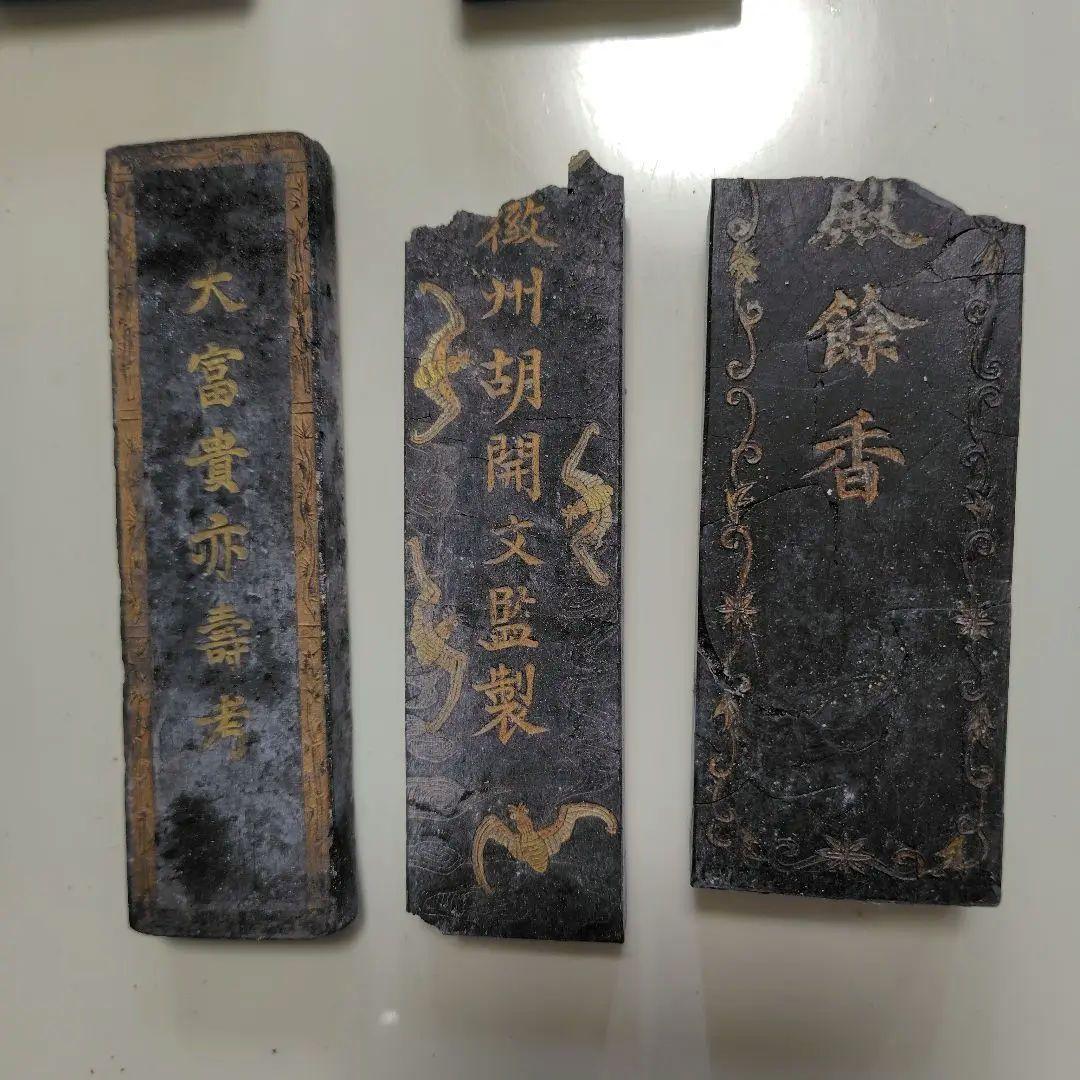 大富貴亦壽考
徽州胡開文監製
殿餘香